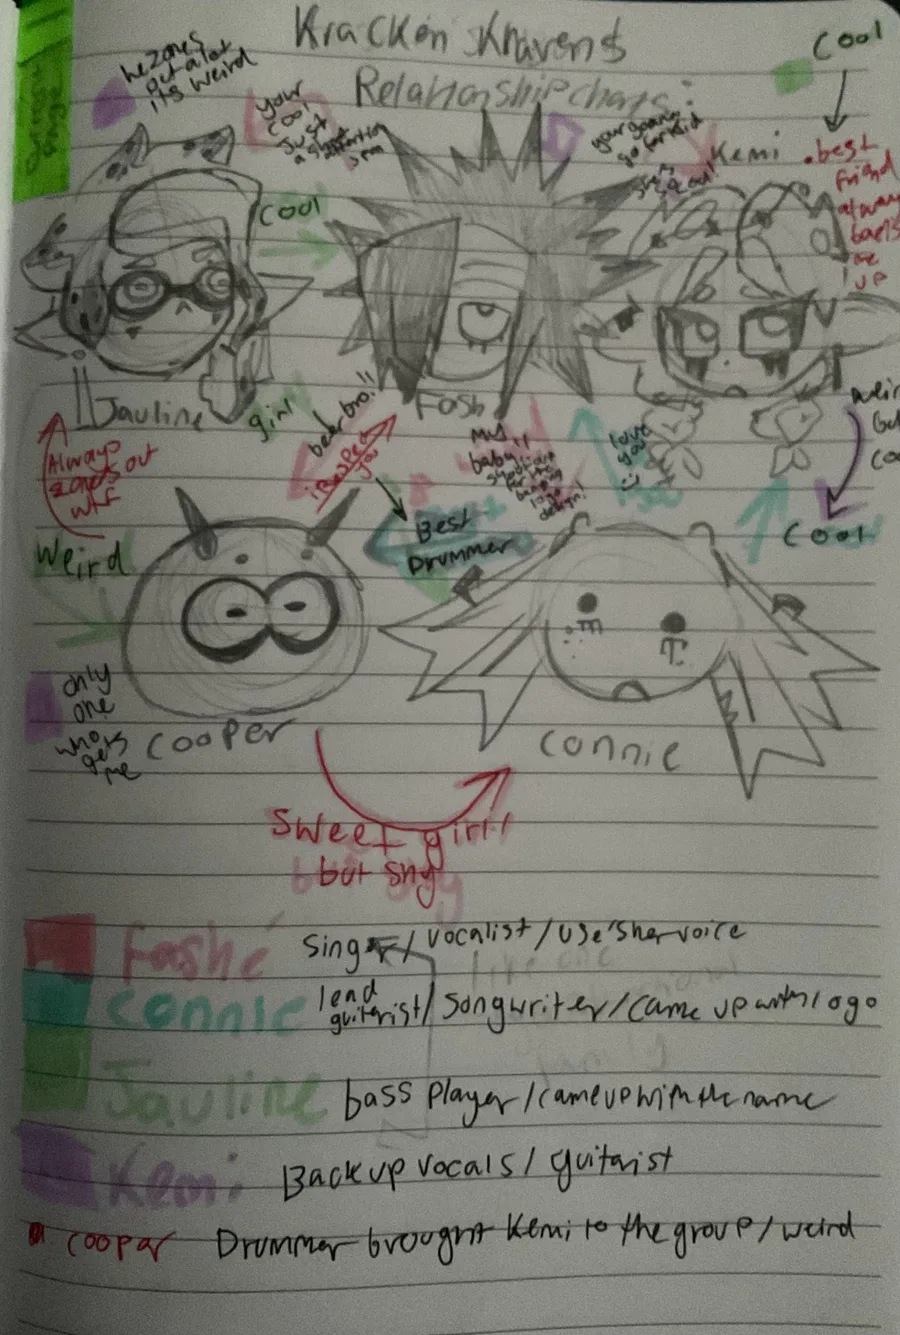 Kracken Kravens
Relationship chars:
Cool
he zones
out a lot
its weird
your
cool
just
a short attention
span
your going
so far kid
Kemi
.best
friend
always
backs
me
up
Cool
Jauline
Fash
girl
bear bro!!
i Respect
you
my
baby
love
you
:)
weird
but
coo
Always
zones out
wtf
Weird
Best
Drummer
Cool
only
one
who
gets
me
cooper
connie
Sweet girl
but shy
Fashé singer/vocalist/use's her voice
connie lead
guiterist/songwriter/came up with logo
Jauline bass player/came up with the name
Kemi Backup vocals/guitarist
cooper Drummer brought Kemi to the group/weird